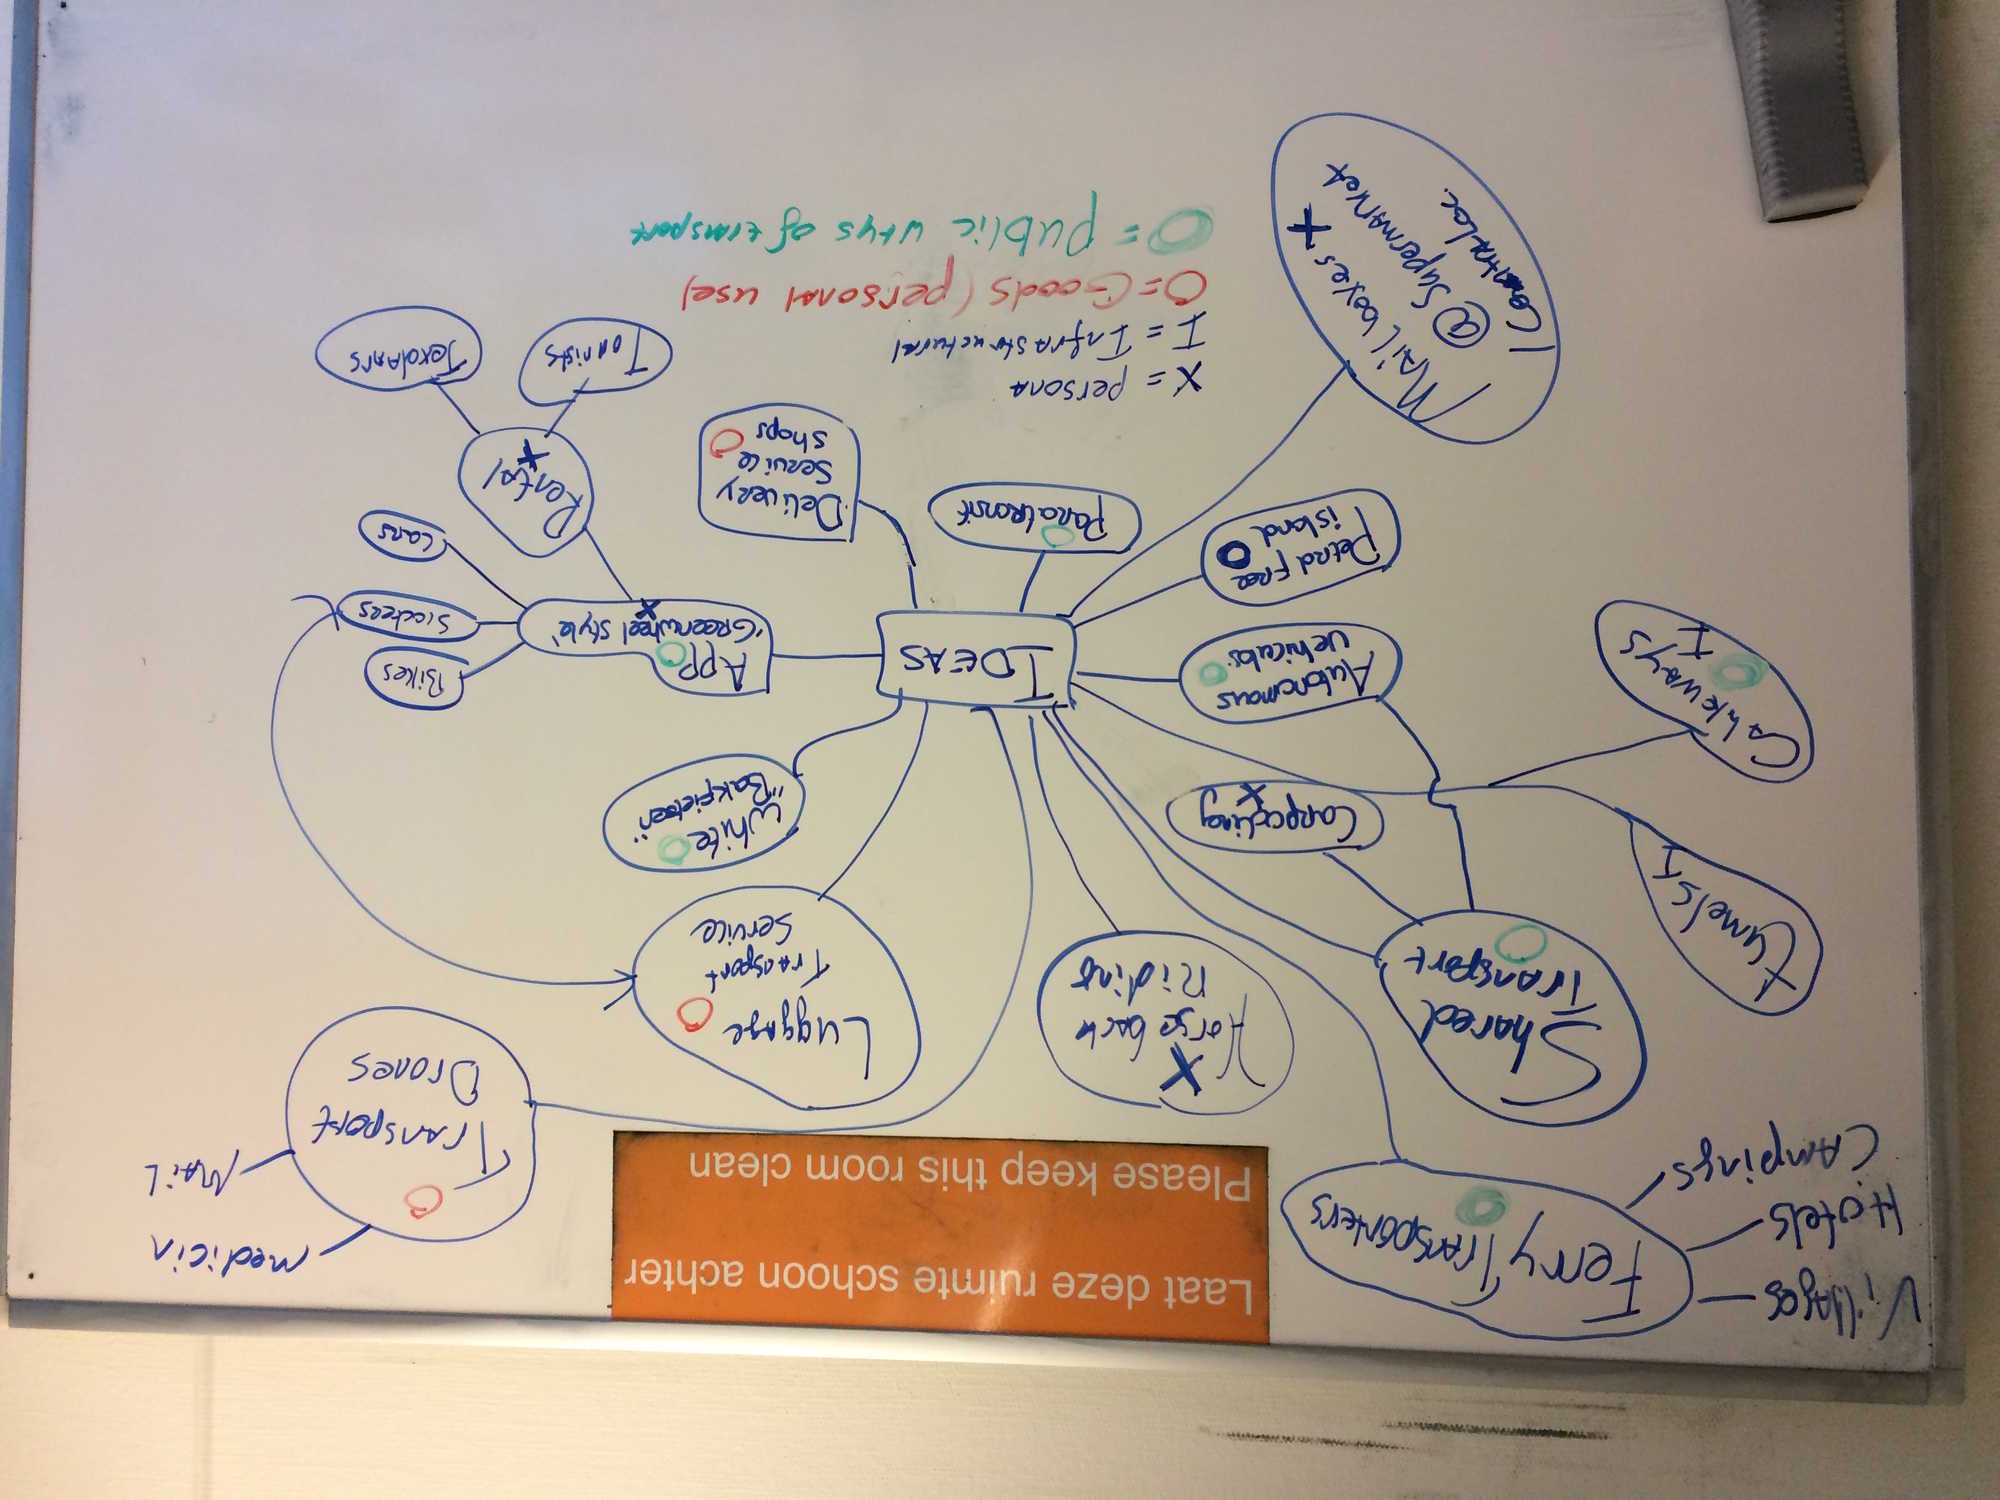 Laat deze ruimte schoon achter
Please keep this room clean
Villages
Hotels
CAMpings
Ferry
TRANSporters
Shared
TRANSport
Tunnels I
CABleways
I
Carpooling
X
Autonomous
Vehicules
Petrol Free
island
MAilboxes X
@ SupermARket
1 CentrAl loc.
X
Horse back
Riding
LuggAge
TRAnsport
Service
TRANSport
Drones
medicin
MAiL
White
"Bakfietsen"
IDEAS
Paratransit
Delivery
Service
Shops
App
"GReenwheel Style"
X
Bikes
Scooters
cars
Rental
X
Tourists
TexelAArs
X = personA
I = InfrAStructural
O = Goods (personAl use)
O = public wAys of trAnsport